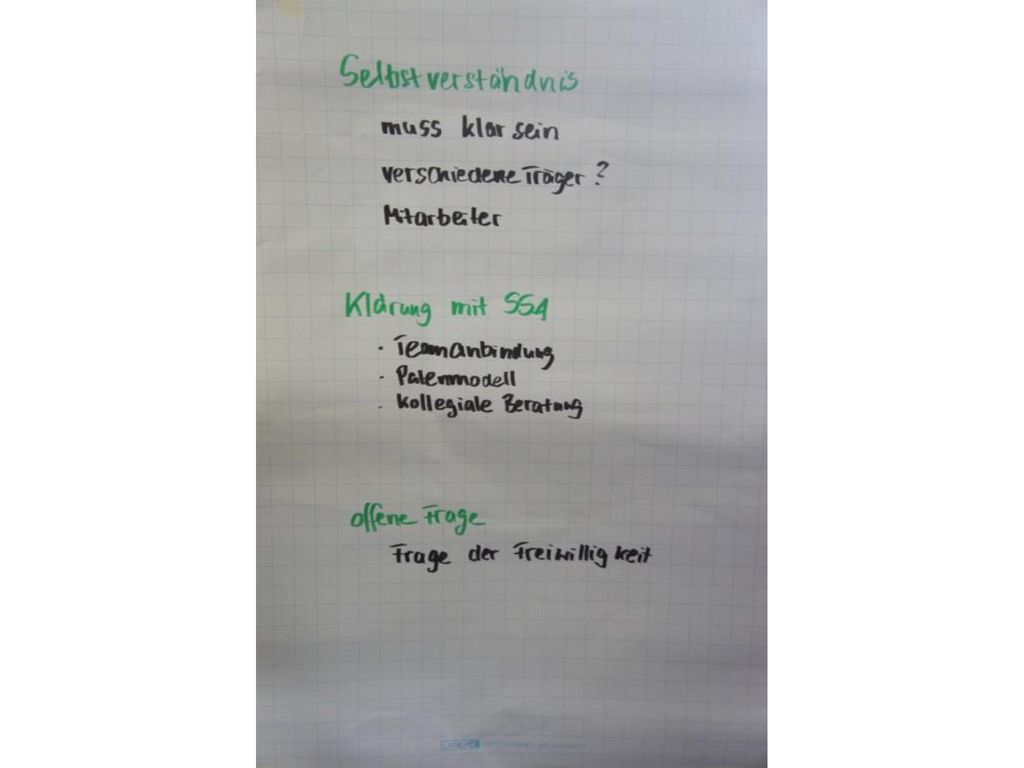 Selbstverständnis
muss klar sein
verschiedene Träger?
Mitarbeiter
Klärung mit SSA
· Teamanbindung
· Patenmodell
· Kollegiale Beratung
offene Frage
Frage der Freiwilligkeit